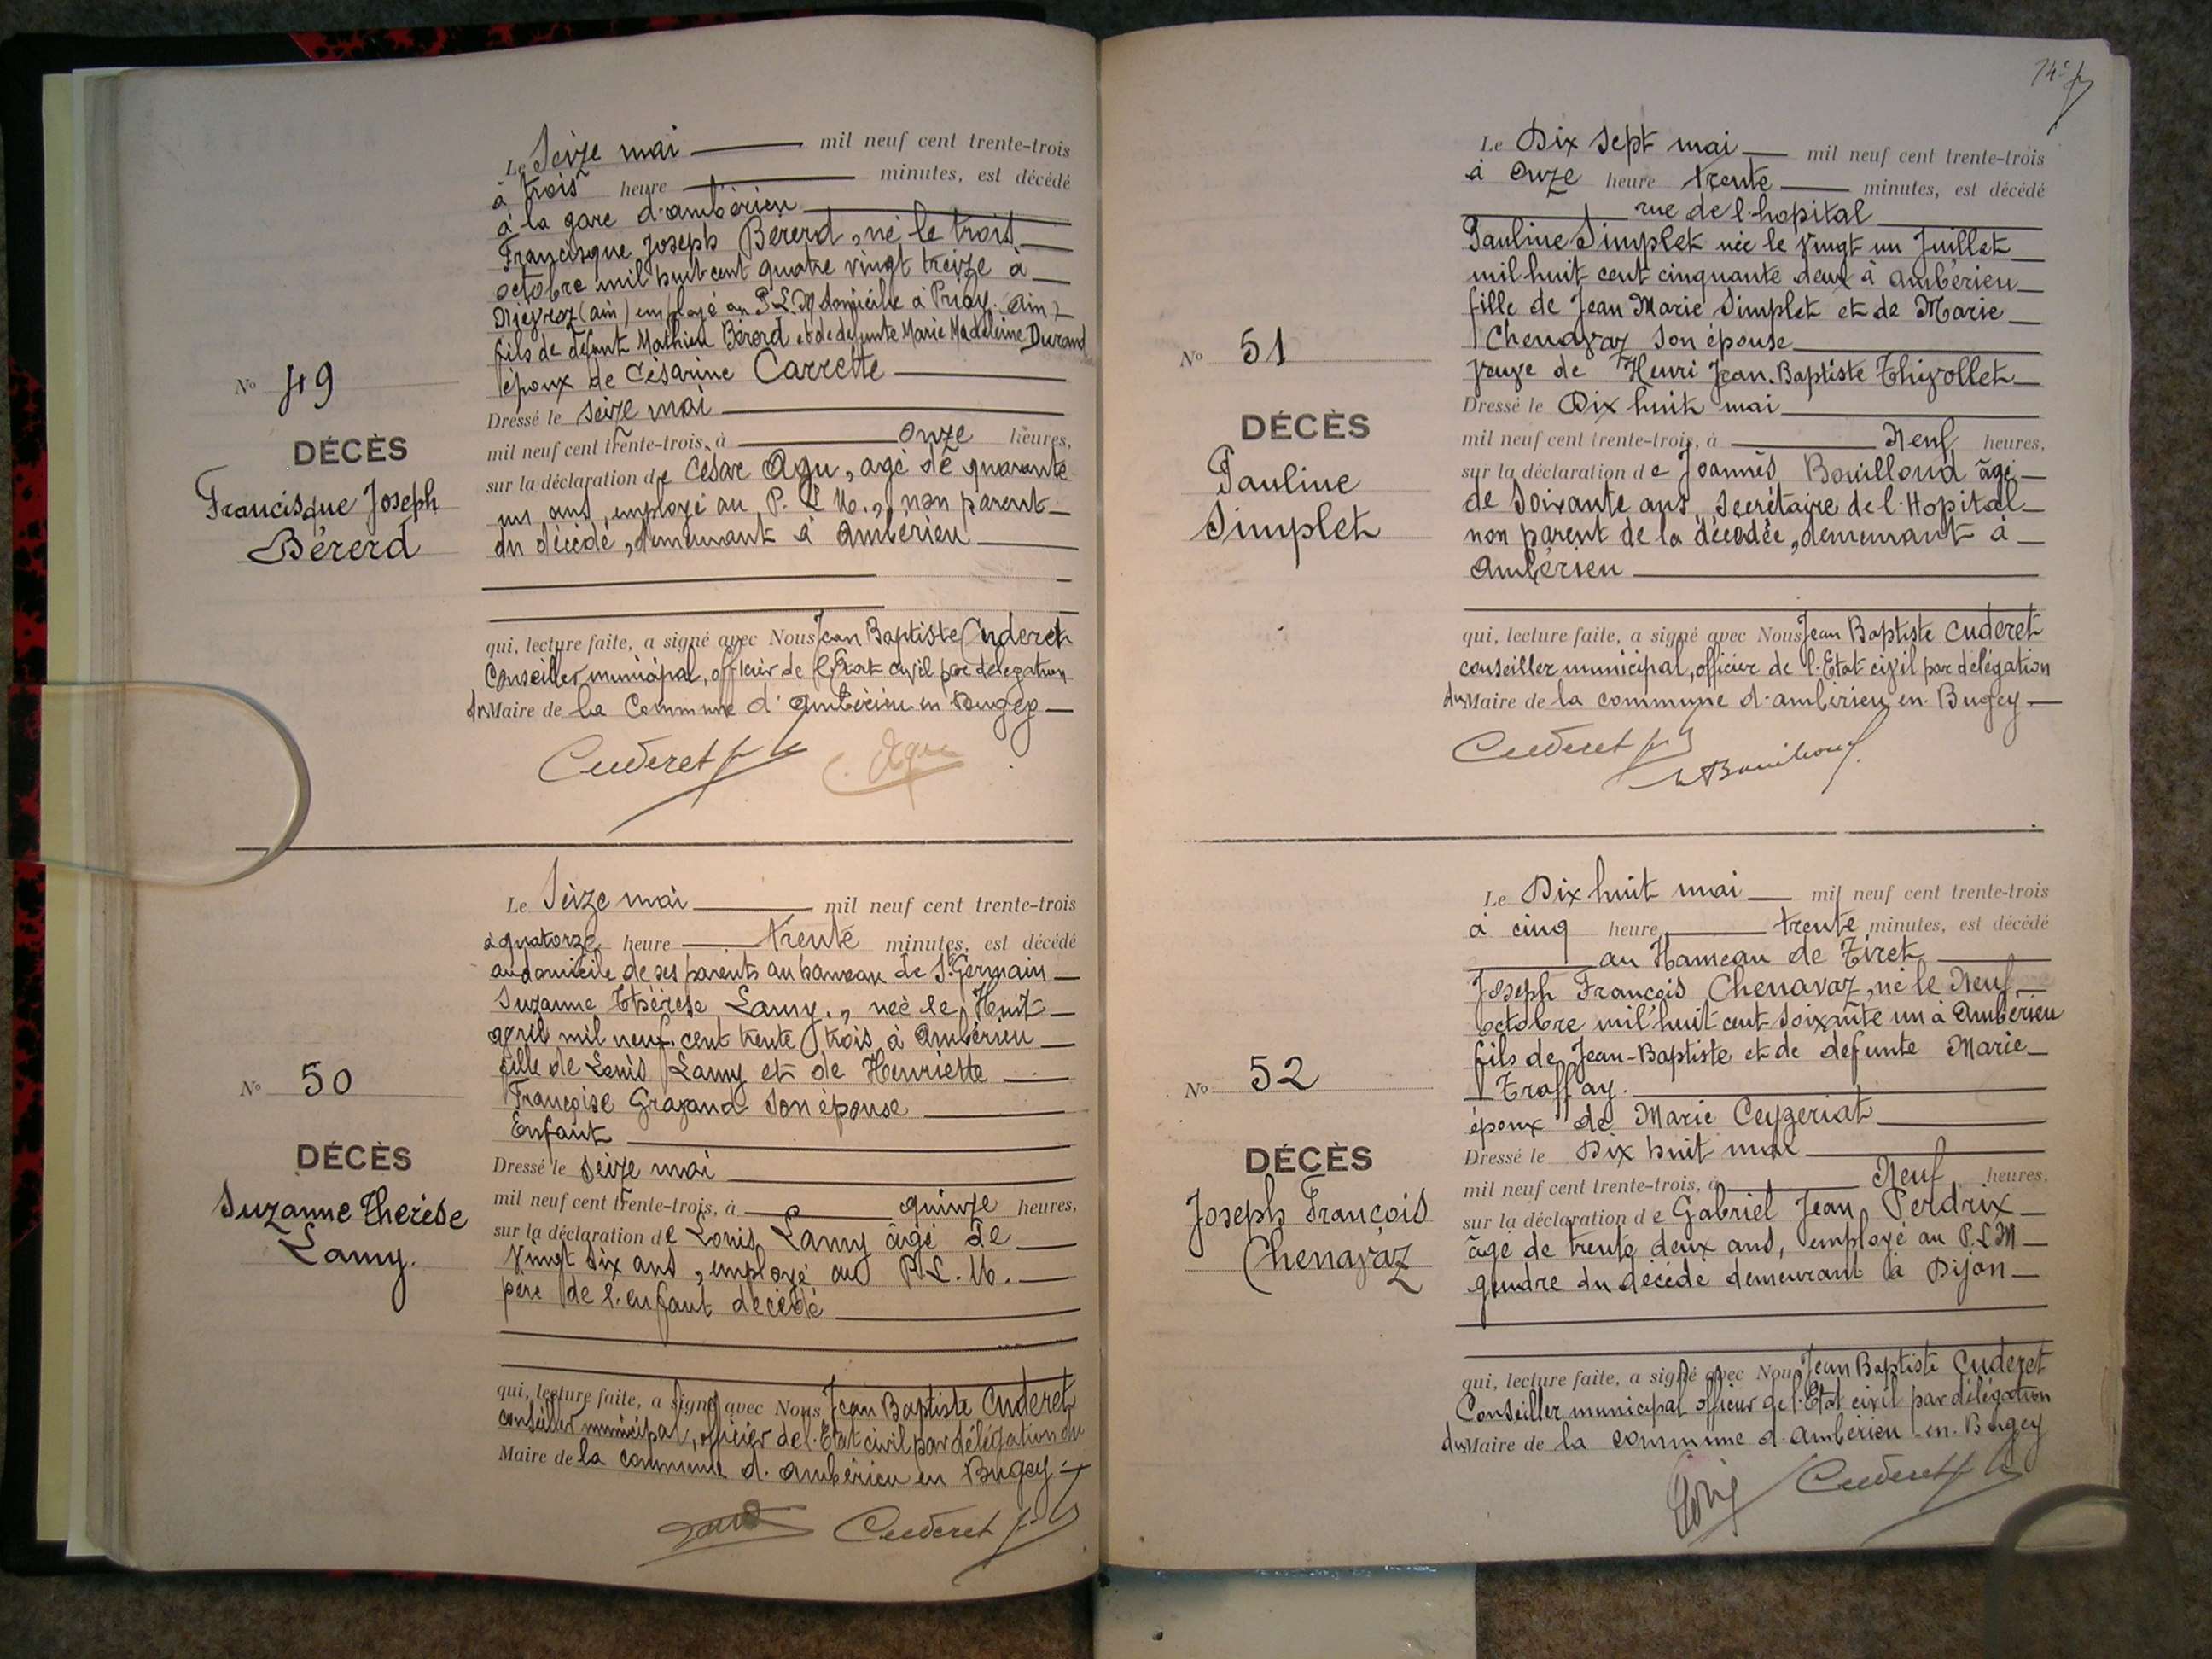 Le Seize mai mil neuf cent trente-trois
à trois heure minutes, est décédé
à la gare d'ambérieu
Francisque Joseph Bérerd, né le trois
octobre mil huit cent quatre vingt treize à
(ain) employé au P.L.M domicilié à Priay (Ain)
fils de défunt Mathieu Bérerd et de defunte Marie Madeleine Durand
époux de Césarine Carrette
Dressé le seize mai
mil neuf cent trente-trois, à onze heures,
sur la déclaration de César Agu, agé de quarante
un ans, employé au P.L.M., non parent
du décédé, demeurant à Ambérieu
qui, lecture faite, a signé avec Nous Jean Baptiste Cuderet
Conseiller municipal, officier de l'Etat civil par délégation
du Maire de la Commune d'ambérieu en Bugey
Cuderet
N° 49
DÉCÈS
Francisque Joseph
Bérerd
Le Seize mai mil neuf cent trente-trois
à quatorze heure trente minutes, est décédé
au domicile de ses parents au hameau de St Germain
Suzanne Thérèse Lamy, née le Huit
avril mil neuf cent trente trois à Ambérieu
fille de Louis Lamy et de Henriette
Françoise son épouse
Enfant
Dressé le seize mai
mil neuf cent trente-trois, à quinze heures,
sur la déclaration de Louis Lamy âgé de
vingt six ans, employé au P.L.M.
père de l'enfant décédé
qui, lecture faite, a signé avec Nous Jean Baptiste Cuderet
conseiller municipal, officier de l'Etat civil par délégation du
Maire de la commune d'ambérieu en Bugey
Cuderet
N° 50
DÉCÈS
Suzanne Thérèse
Lamy.
Le Dix sept mai mil neuf cent trente-trois
à onze heure trente minutes, est décédé
rue de l'hopital
Pauline Simplet née le vingt un Juillet
mil huit cent cinquante deux à Ambérieu
fille de Jean Marie Simplet et de Marie
Chenavaz son épouse
veuve de Henri Jean-Baptiste Thivollet
Dressé le Dix huit mai
mil neuf cent trente-trois, à Neuf heures,
sur la déclaration de Joannès Bouilloud âgé
de soixante ans, secrétaire de l'Hopital
non parent de la décédée, demeurant à
Ambérieu
qui, lecture faite, a signé avec Nous Jean Baptiste Cuderet
conseiller municipal, officier de l'Etat civil par délégation
du Maire de la commune d'ambérieu en Bugey
Cuderet
N° 51
DÉCÈS
Pauline
Simplet
Le Dix huit mai mil neuf cent trente-trois
à cinq heure trente minutes, est décédé
au Hameau de Tiret
Joseph François Chenavaz, né le Neuf
octobre mil huit cent soixante un à Ambérieu
fils de Jean-Baptiste et de défunte Marie
Traffay.
époux de Marie Ceyzeriat
Dressé le Dix huit mai
mil neuf cent trente-trois, à Neuf heures,
sur la déclaration de Gabriel Jean Perdrix
âgé de trente deux ans, employé au P.L.M
gendre du décédé demeurant à Dijon
qui, lecture faite, a signé avec Nous Jean Baptiste Cuderet
Conseiller municipal officier de l'Etat civil par délégation
du Maire de la commune d'ambérieu en Bugey
Cuderet
N° 52
DÉCÈS
Joseph François
Chenavaz